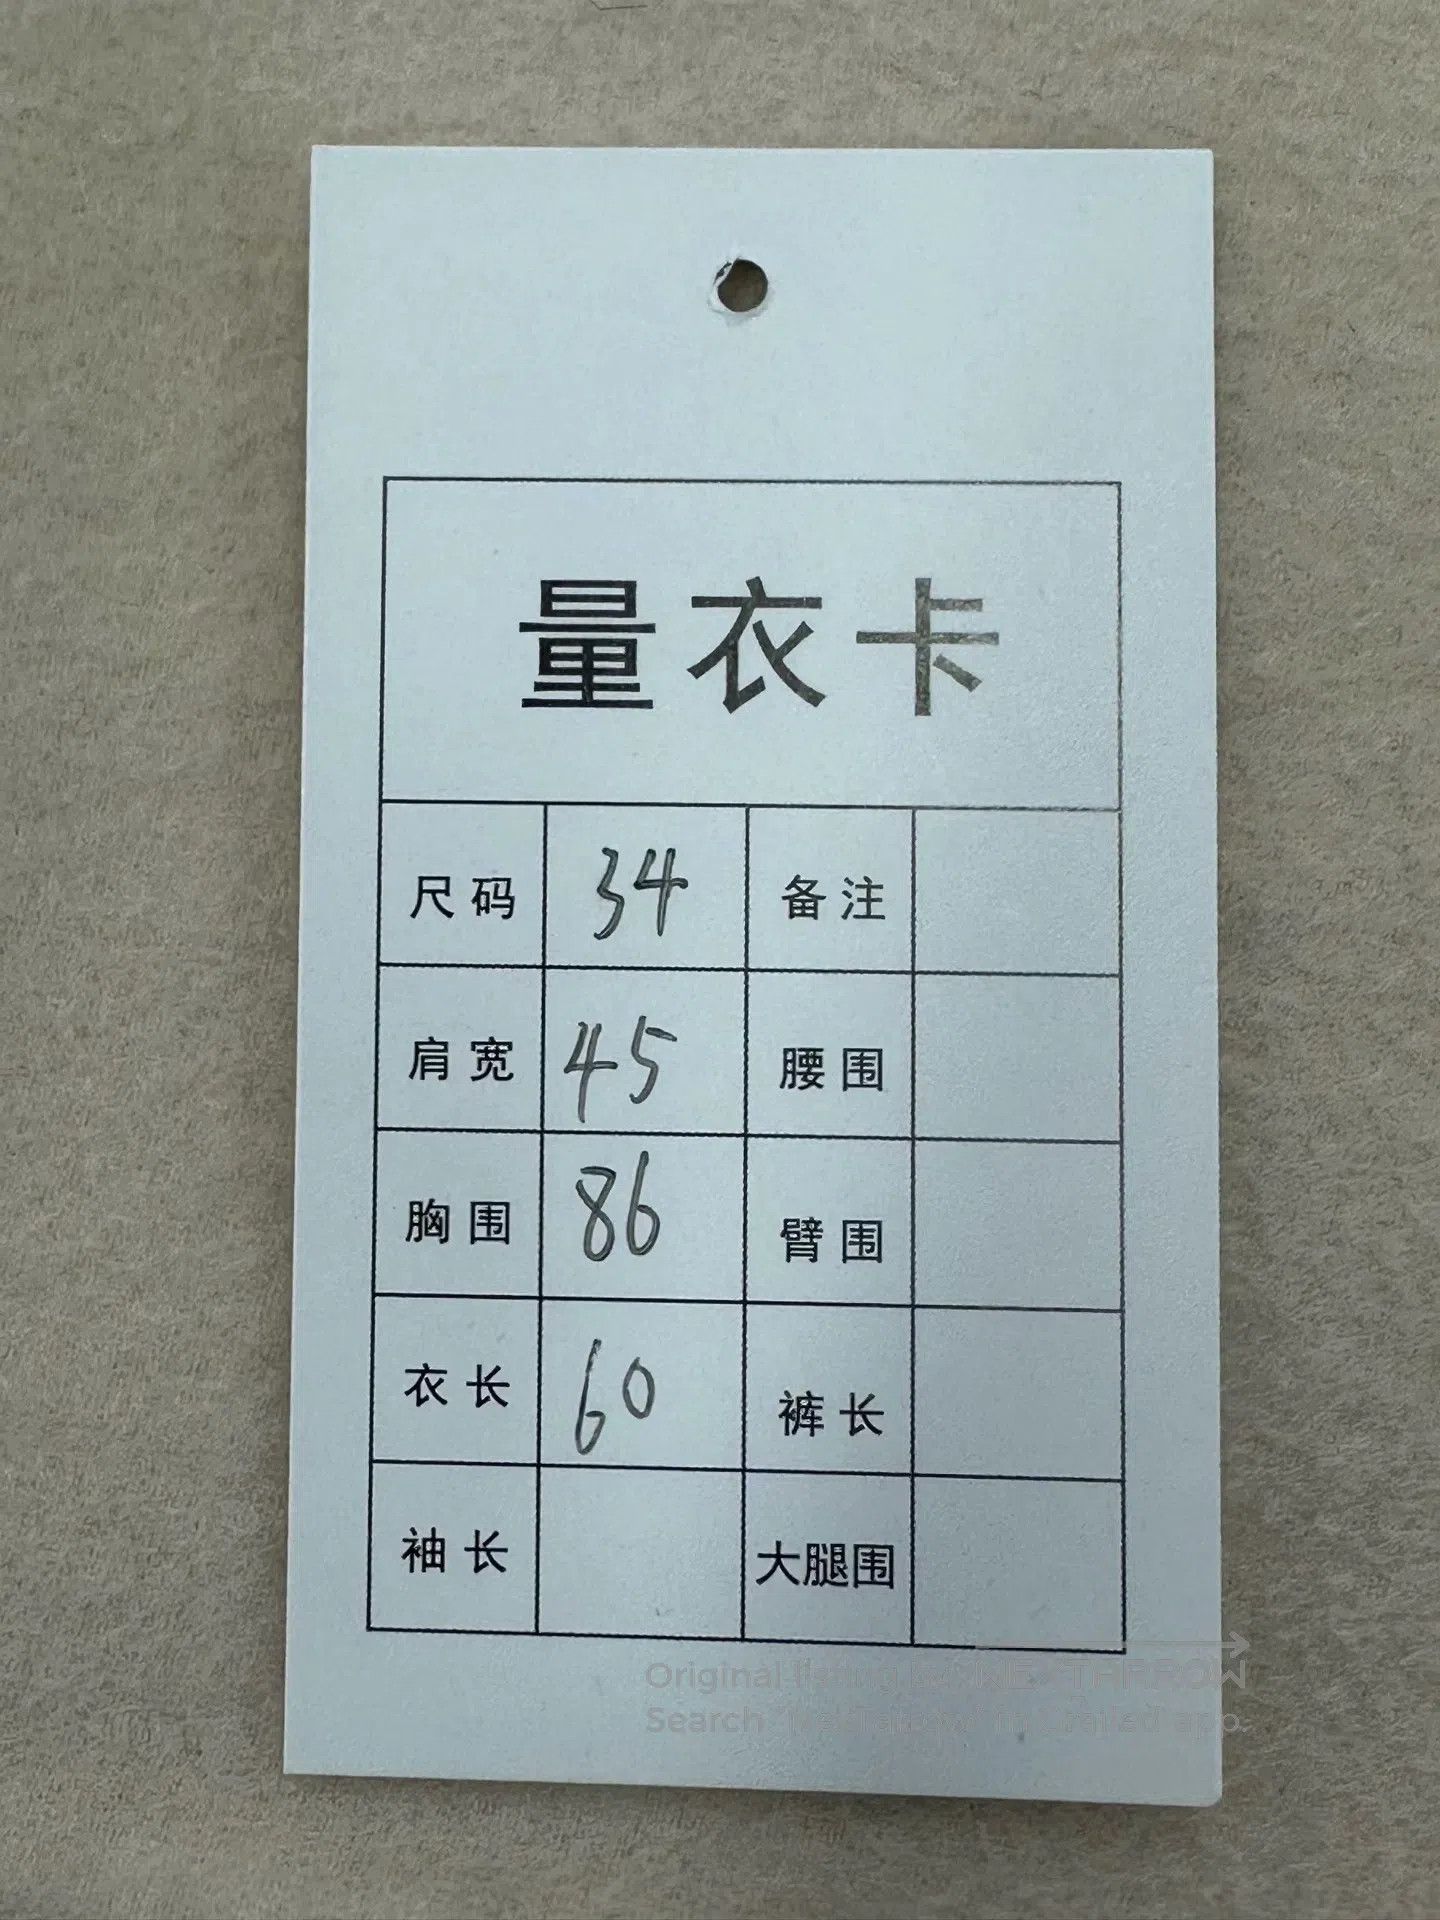 量衣卡
尺码 34 备注
肩宽 45 腰围
胸围 86 臂围
衣长 60 裤长
袖长 大腿围
Original listing by NEXTARROW
Search "NextArrow" in Grailed app.